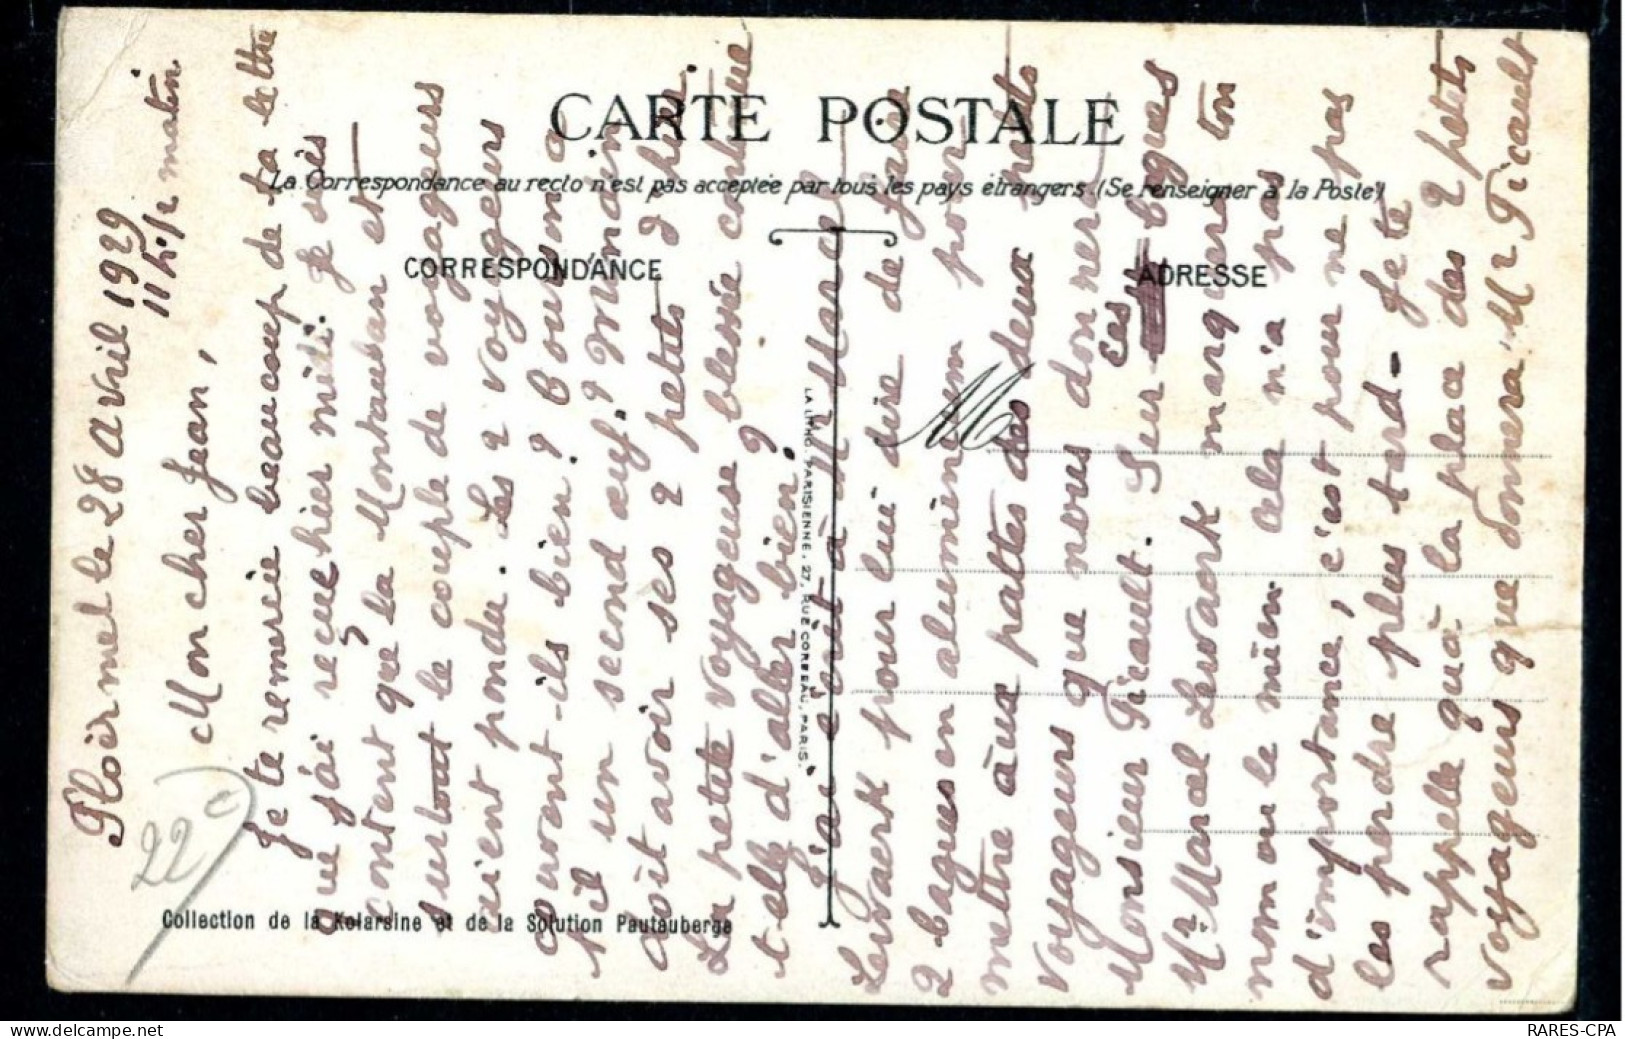 CARTE POSTALE
La Correspondance au recto n'est pas acceptée par tous les pays étrangers (Se renseigner à la Poste)
CORRESPONDANCE
ADRESSE
Collection de la Kolarsine et de la Solution Pautauberge
LA LITHO. PARISIENNE. 27, RUE CORBEAU, PARIS.
22
Ploërmel le 28 avril 1929
11 h. 1/2 matin
Mon cher Jean,
Je te remercie beaucoup de ta lettre
que j'ai reçue hier midi. Je sais
content que la Montauban et
surtout le couple de voyageurs
aient pondu. Les 2 voyageurs
couvent-ils bien ?
t-il un second œuf ? Demain
doit avoir ses 2 petits ?
La petite voyageuse blessée continue
t-elle d'aller bien ?
J'ai écrit à Mr Marcel
Levaerk pour lui dire de faire
2 bagues en aluminium pour
mettre aux pattes des deux petits
voyageurs que nous donnera
Monsieur Picault. Sur ces bagues
Mr Marcel Levaerk marquera ton
nom ou le mien cela n'a pas
d'importance, c'est pour ne pas
les perdre plus tard - Je te
rappelle qu'à la place des 2 petits
voyageurs que donnera Mr Picault
RARES-CPA